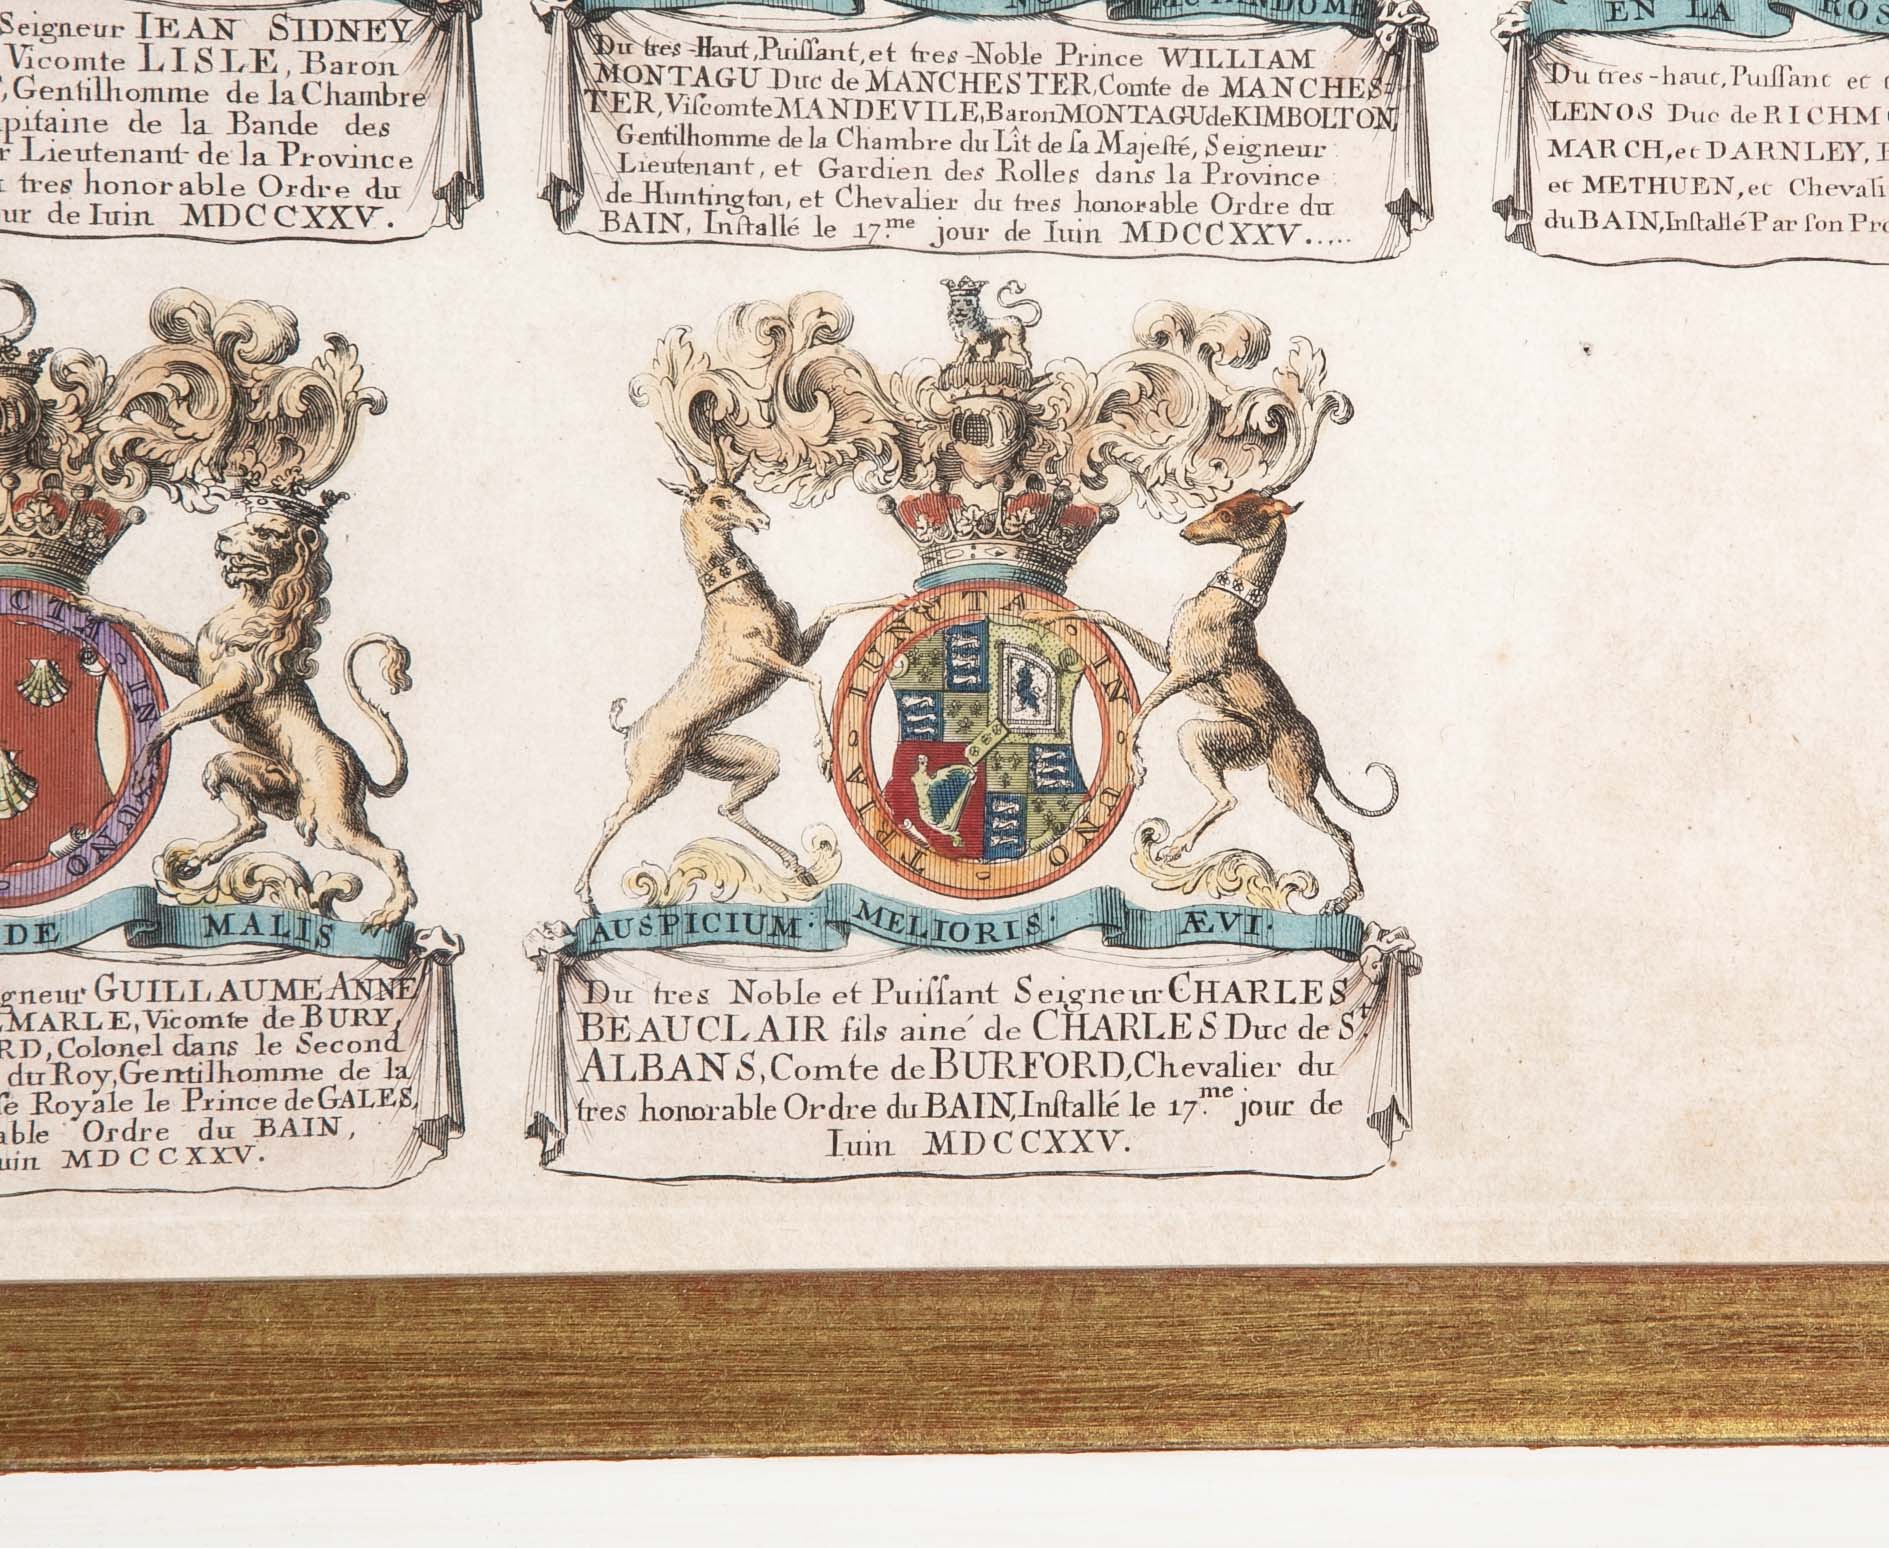 Seigneur IEAN SIDNEY
Vicomte LISLE, Baron
, Gentilhomme de la Chambre
de la Bande des
Lieutenant de la Province
tres honorable Ordre du
de Iuin MDCCXXV.
MUTANDOME
Du tres-Haut, Puiſſant, et tres-Noble Prince WILLIAM
MONTAGU Duc de MANCHESTER, Comte de MANCHES=
TER, Viſcomte MANDEVILE, Baron MONTAGU de KIMBOLTON,
Gentilhomme de la Chambre du Lît de ſa Majeſté, Seigneur
Lieutenant, et Gardien des Rolles dans la Province
de Huntington, et Chevalier du tres honorable Ordre du
BAIN, Inſtallé le 17.me jour de Iuin MDCCXXV.....
EN LA ROS
Du tres-haut, Puiſſant et
LENOS Duc de RICHM
MARCH, et DARNLEY,
et METHUEN, et Chevali
du BAIN, Inſtallé Par ſon Pro
CTA · IN · UNO ·
DE MALIS
gneur GUILLAUME ANNE
EMARLE, Vicomte de BURY,
RD, Colonel dans le Second
du Roy, Gentilhomme de la
Royale le Prince de GALES,
able Ordre du BAIN,
uin MDCCXXV.
TRIA · IUNCTA · IN · UNO ·
AUSPICIUM: MELIORIS· ÆVI·
Du tres Noble et Puiſſant Seigneur CHARLES
BEAUCLAIR fils ainé de CHARLES Duc de St.
ALBANS, Comte de BURFORD, Chevalier du
tres honorable Ordre du BAIN, Inſtallé le 17.me jour de
Iuin MDCCXXV.